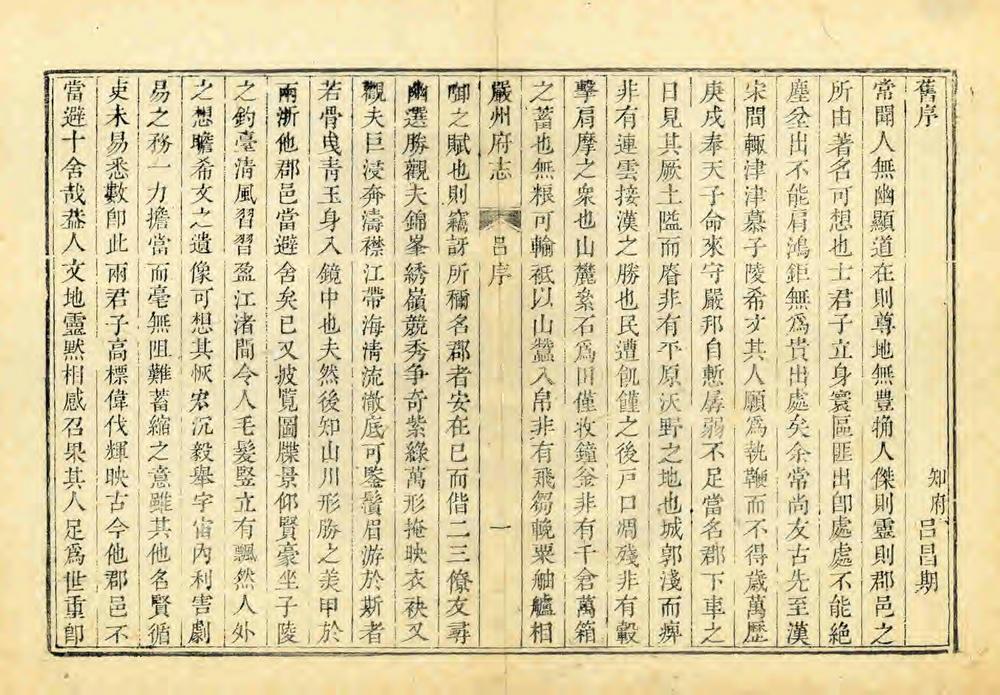 舊序
知府呂昌期
常聞人無幽顯道在則尊地無豊瘠人傑則靈則郡邑之
所由著名可想也士君子立身寰區匪出卽處處不能絶
塵坌出不能肩鴻鉅無爲貴出處矣余常尚友古先至漢
宋間輒津津慕子陵希文其人願爲執鞭而不得歲萬歷
庚戌奉天子命來守嚴邦自慙孱弱不足當名郡下車之
日見其厥土隘而瘠非有平原沃野之地也城郭淺而痺
非有連雲接漢之勝也民遭飢饉之後戸口凋殘非有轂
擊肩摩之衆也山麓絫石爲田僅收鐘釜非有千倉萬箱
之蓄也無粮可輸祗以山蠶入帛非有飛芻輓粟舳艫相
嚴州府志
呂序
一
啣之賦也則竊訝所稱名郡者安在已而偕二三僚友尋
幽選勝觀夫錦峯綉嶺競秀争奇紫綠萬形掩映衣袂又
觀夫巨浸奔濤襟江帶海淸流澈底可鑒鬚眉游於斯者
若骨曳青玉身入鏡中也夫然後知山川形勝之美甲於
兩浙他郡邑當避舍矣已又披覧圖牒景仰賢豪坐子陵
之釣臺清風習習盈江渚間令人毛髮豎立有飄然人外
之想瞻希文之遺像可想其恢宏沉毅舉宇宙內利害劇
易之務一力擔當而毫無阻難蓄縮之意雖其他名賢循
吏未易悉數卽此兩君子高標偉伐輝映古今他郡邑不
當避十舍哉葢人文地靈黙相感召果其人足爲世重卽